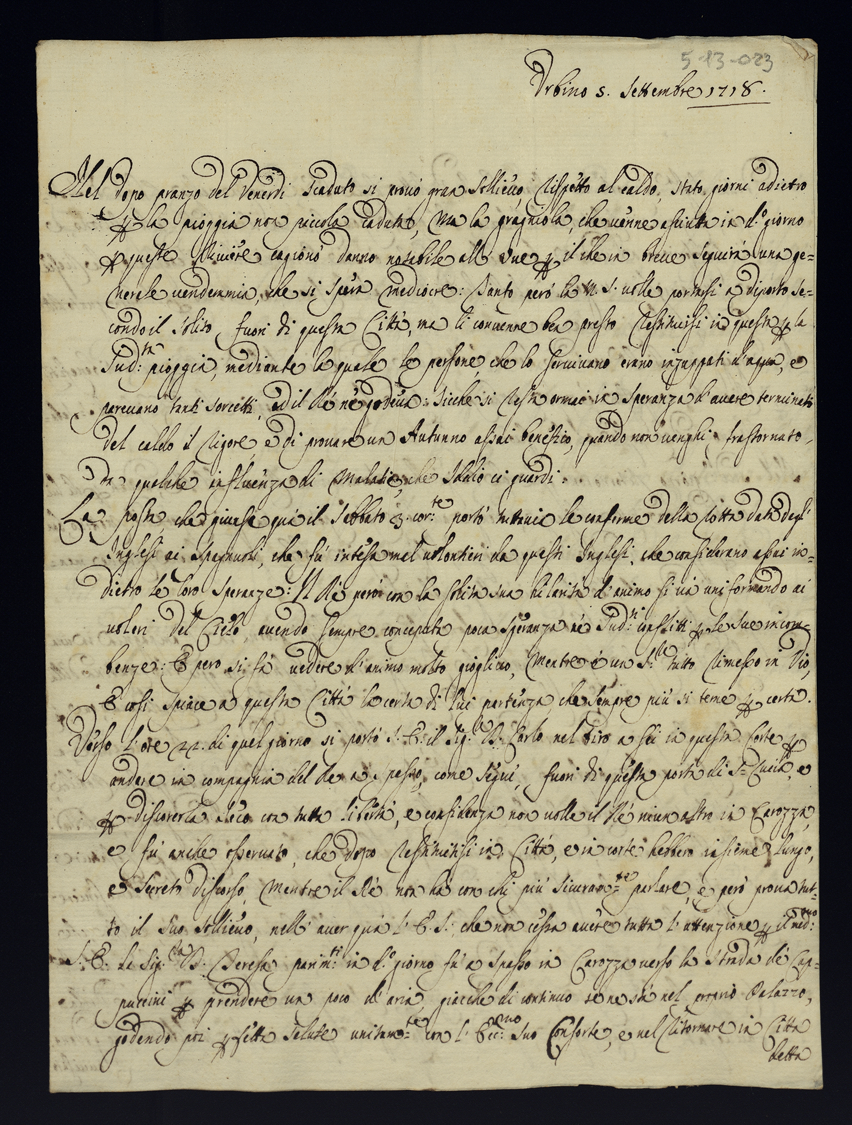 5-13-023
Urbino 5. Settembre 1718.
Nel dopo pranzo del Venerdì scaduto si provò gran sollievo rispetto al caldo, stato giorni adietro
la pioggia non piccola caduta, Ma la gragniola, che venne asciutta in d.º giorno
queste Riviere cagionò danno notabile all' Uve, il che in breve seguirà una ge=
nerale vendemmia, che si spera mediocre: Tanto però la M. S. volle portarsi a diporto se=
condo il solito fuori di questa Città, ma li convenne ben presto restituirsi in questa p la
sud:ta pioggia, mediante la quale le persone, che lo servivano erano inzuppati d'acqua, e
parevano tanti sorcetti, ed il Rè nè godeva: sicche si resta ormai in speranza d'avere terminato
del caldo il rigore, e di provare un Autunno assai benefico, quando non venghi trastornato
da qualche influenza di Malatie, che Iddio ci guardi.
La posta che giunse quà il Sabbato 3. cor:te portò tuttavia le conferme della rotta data degl'
Inglesi ai Spagnuoli, che fù intesa mal volontieri da questi Inglesi, che considerano assai in=
dietro le loro speranze: Il Rè però con la solita sua hilarità d'animo si và uniformando ai
voleri del Cielo, avendo sempre concepita poca speranza ne sud:ti conflitti p le sue incom=
benze: E pero si fà vedere d'animo molto gioglivo, mentre è un S:re tutto rimesso in Dio,
E così spiace a questa Città la certa di lui partenza che sempre più si teme p certa.
Verso l'ore 22. di quel giorno si portò S. E. il Sig:r D. Carlo nel Tiro a sei in questa Corte p
andare in compagnia del Rè a spasso, come seguì, fuori di questa porta di S. Lucia, e
p discorerla seco con tutta libertà, e confidenza non volle il Rè niun altro in Carozza,
e fù anche osservato, che dopo restituitisi in Città, e in corte hebbero insieme lungo,
e secreto discorso, Mentre il Rè non hà con chi più sicuram:te parlare, e però prova tut=
to il suo sollievo, nell' aver quà l' E. S. che non cessa avere tutta l'attenzione p il med:mo
S. E. la Sig:ra D. Teresa parim:ti in d.º giorno fù a spasso in Carozza verso la strada de Cap=
puccini p prendere un poco d'aria, giacche di continuo se ne stà nel proprio Palazzo,
godendo poi pfetta salute unitam:te con l' Ecc:mo suo Consorte, e nel ritornare in Città
detta